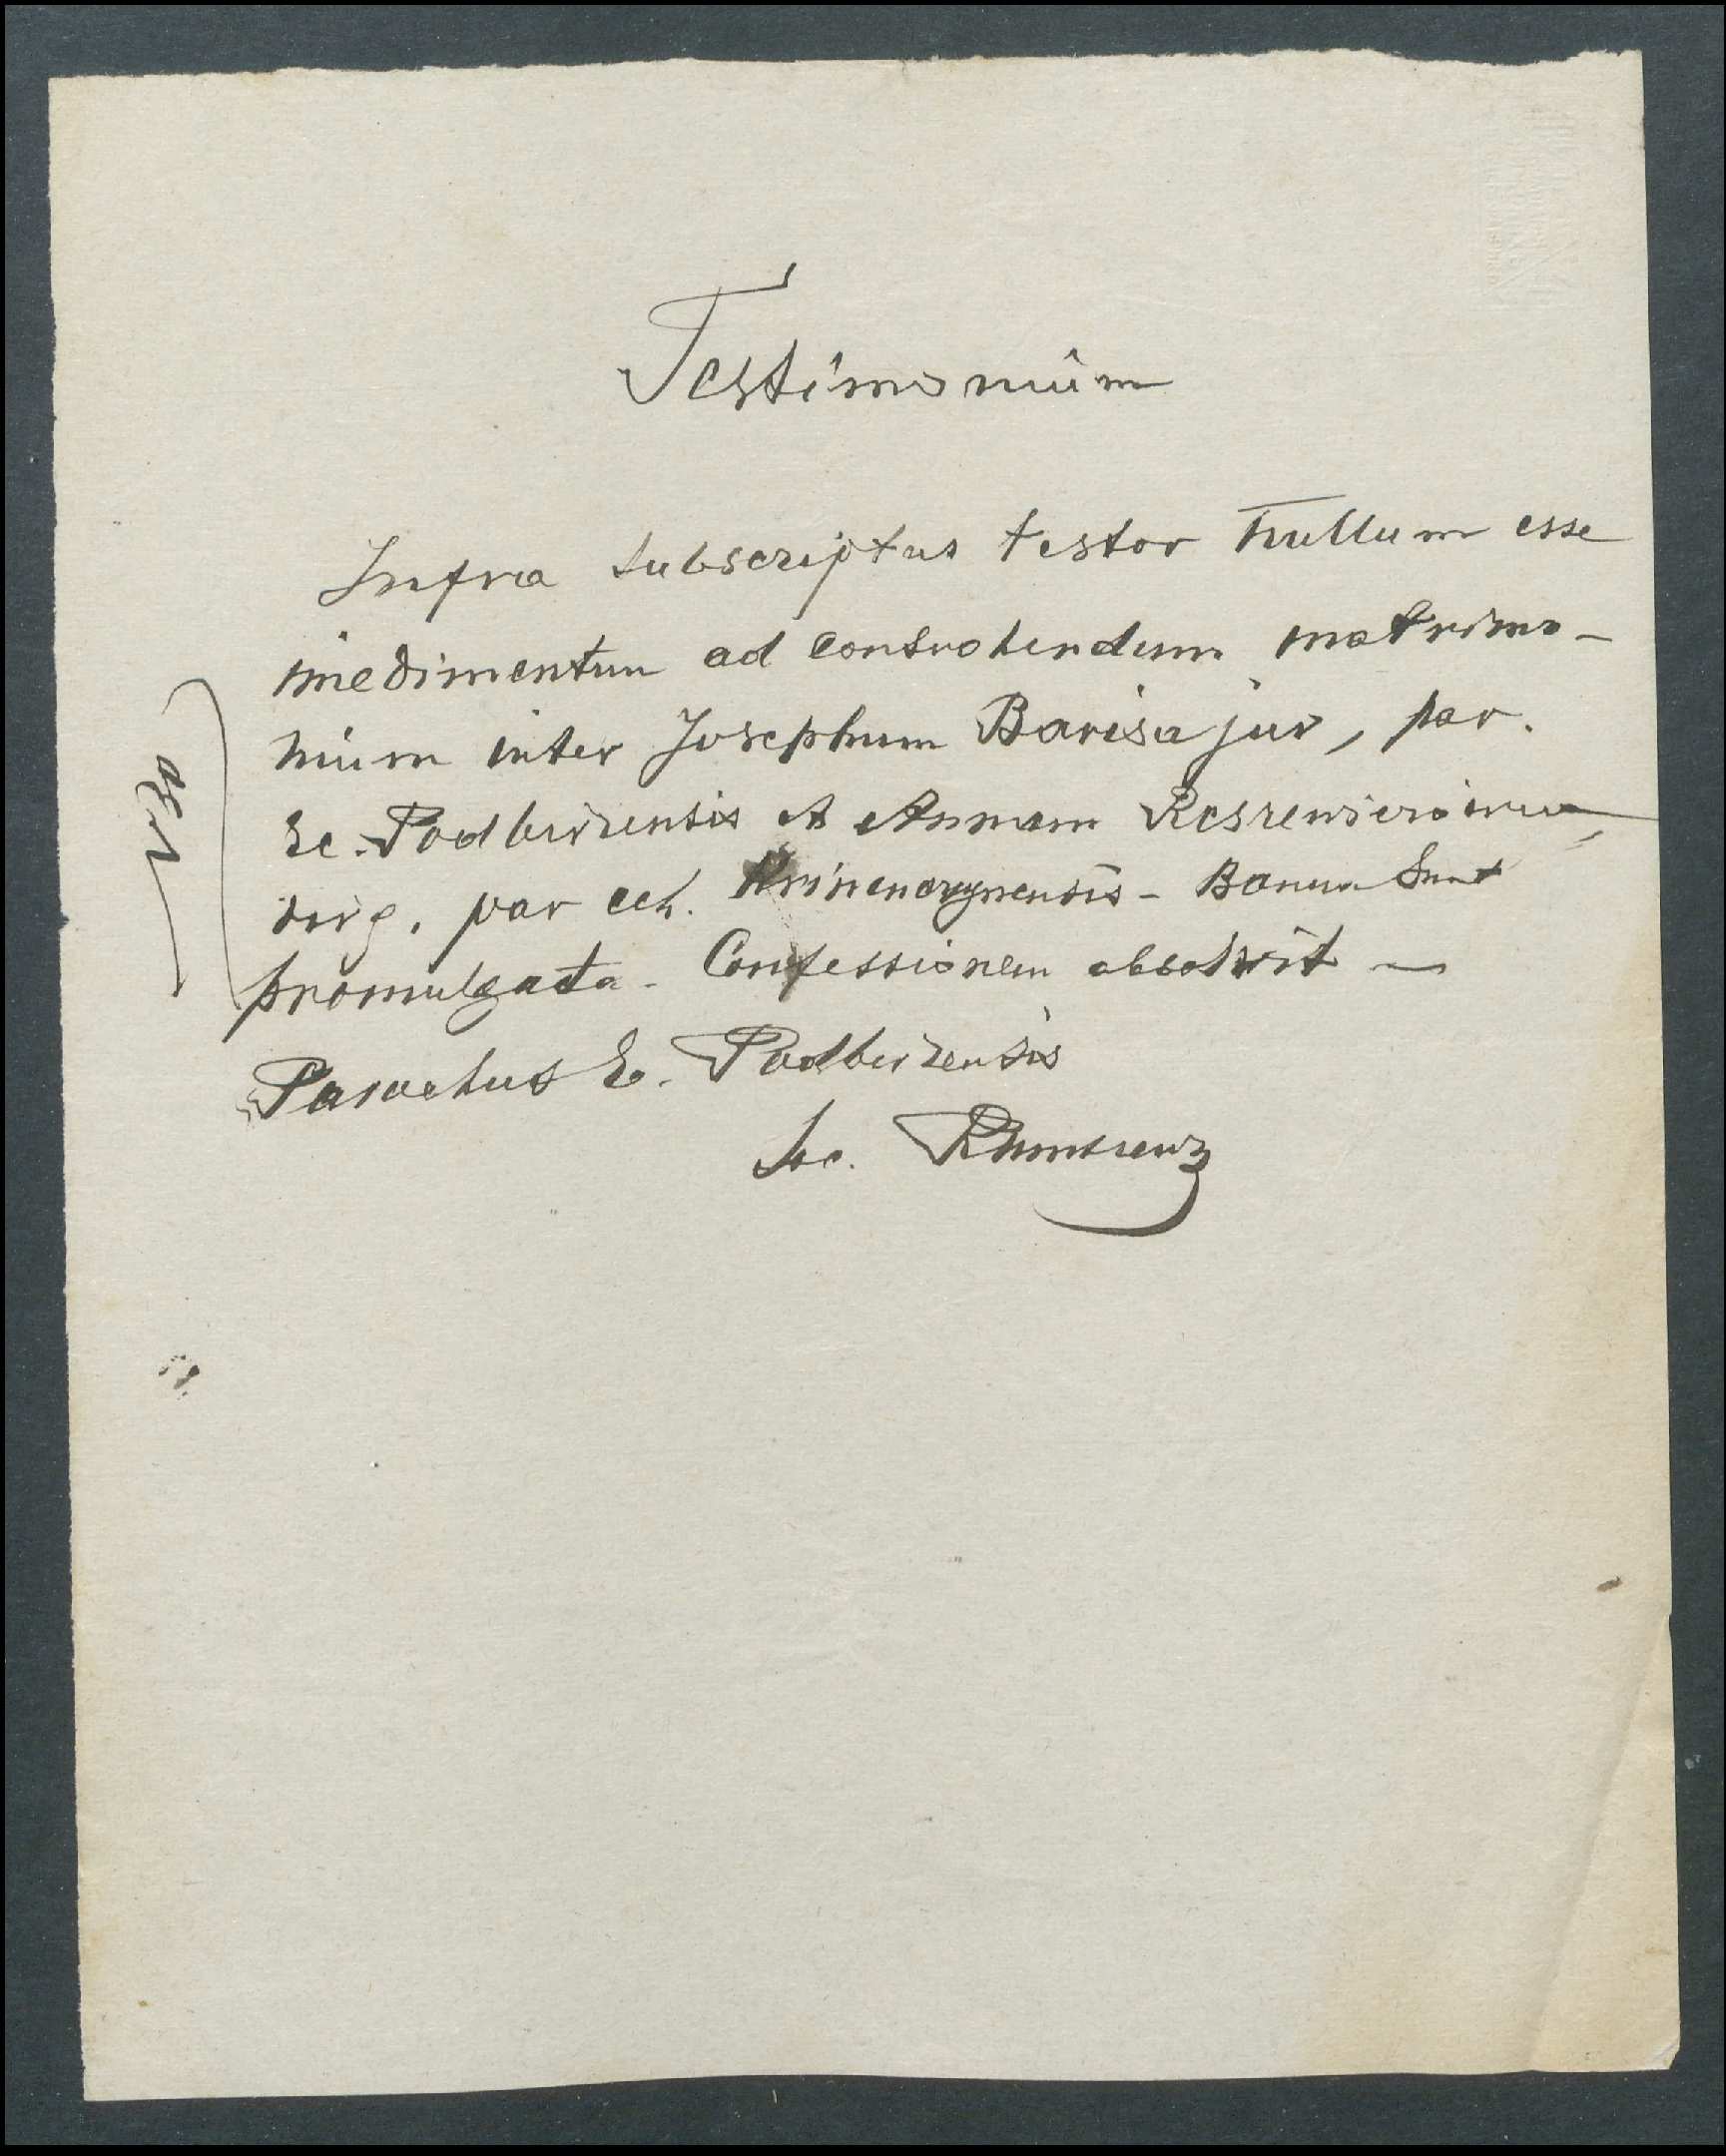 Testimonium
Infra subscriptus testor nullum esse
imedimentum ad contrahendum matrimo-
nium inter Josephum Barisa juv, par.
Ec. Podbirzensis et Annam
virg. par ecl. - Banna sunt
promulgata. Confessionem absolvit -
Parochus Ec. Podbirzensis
Sac.
N 30